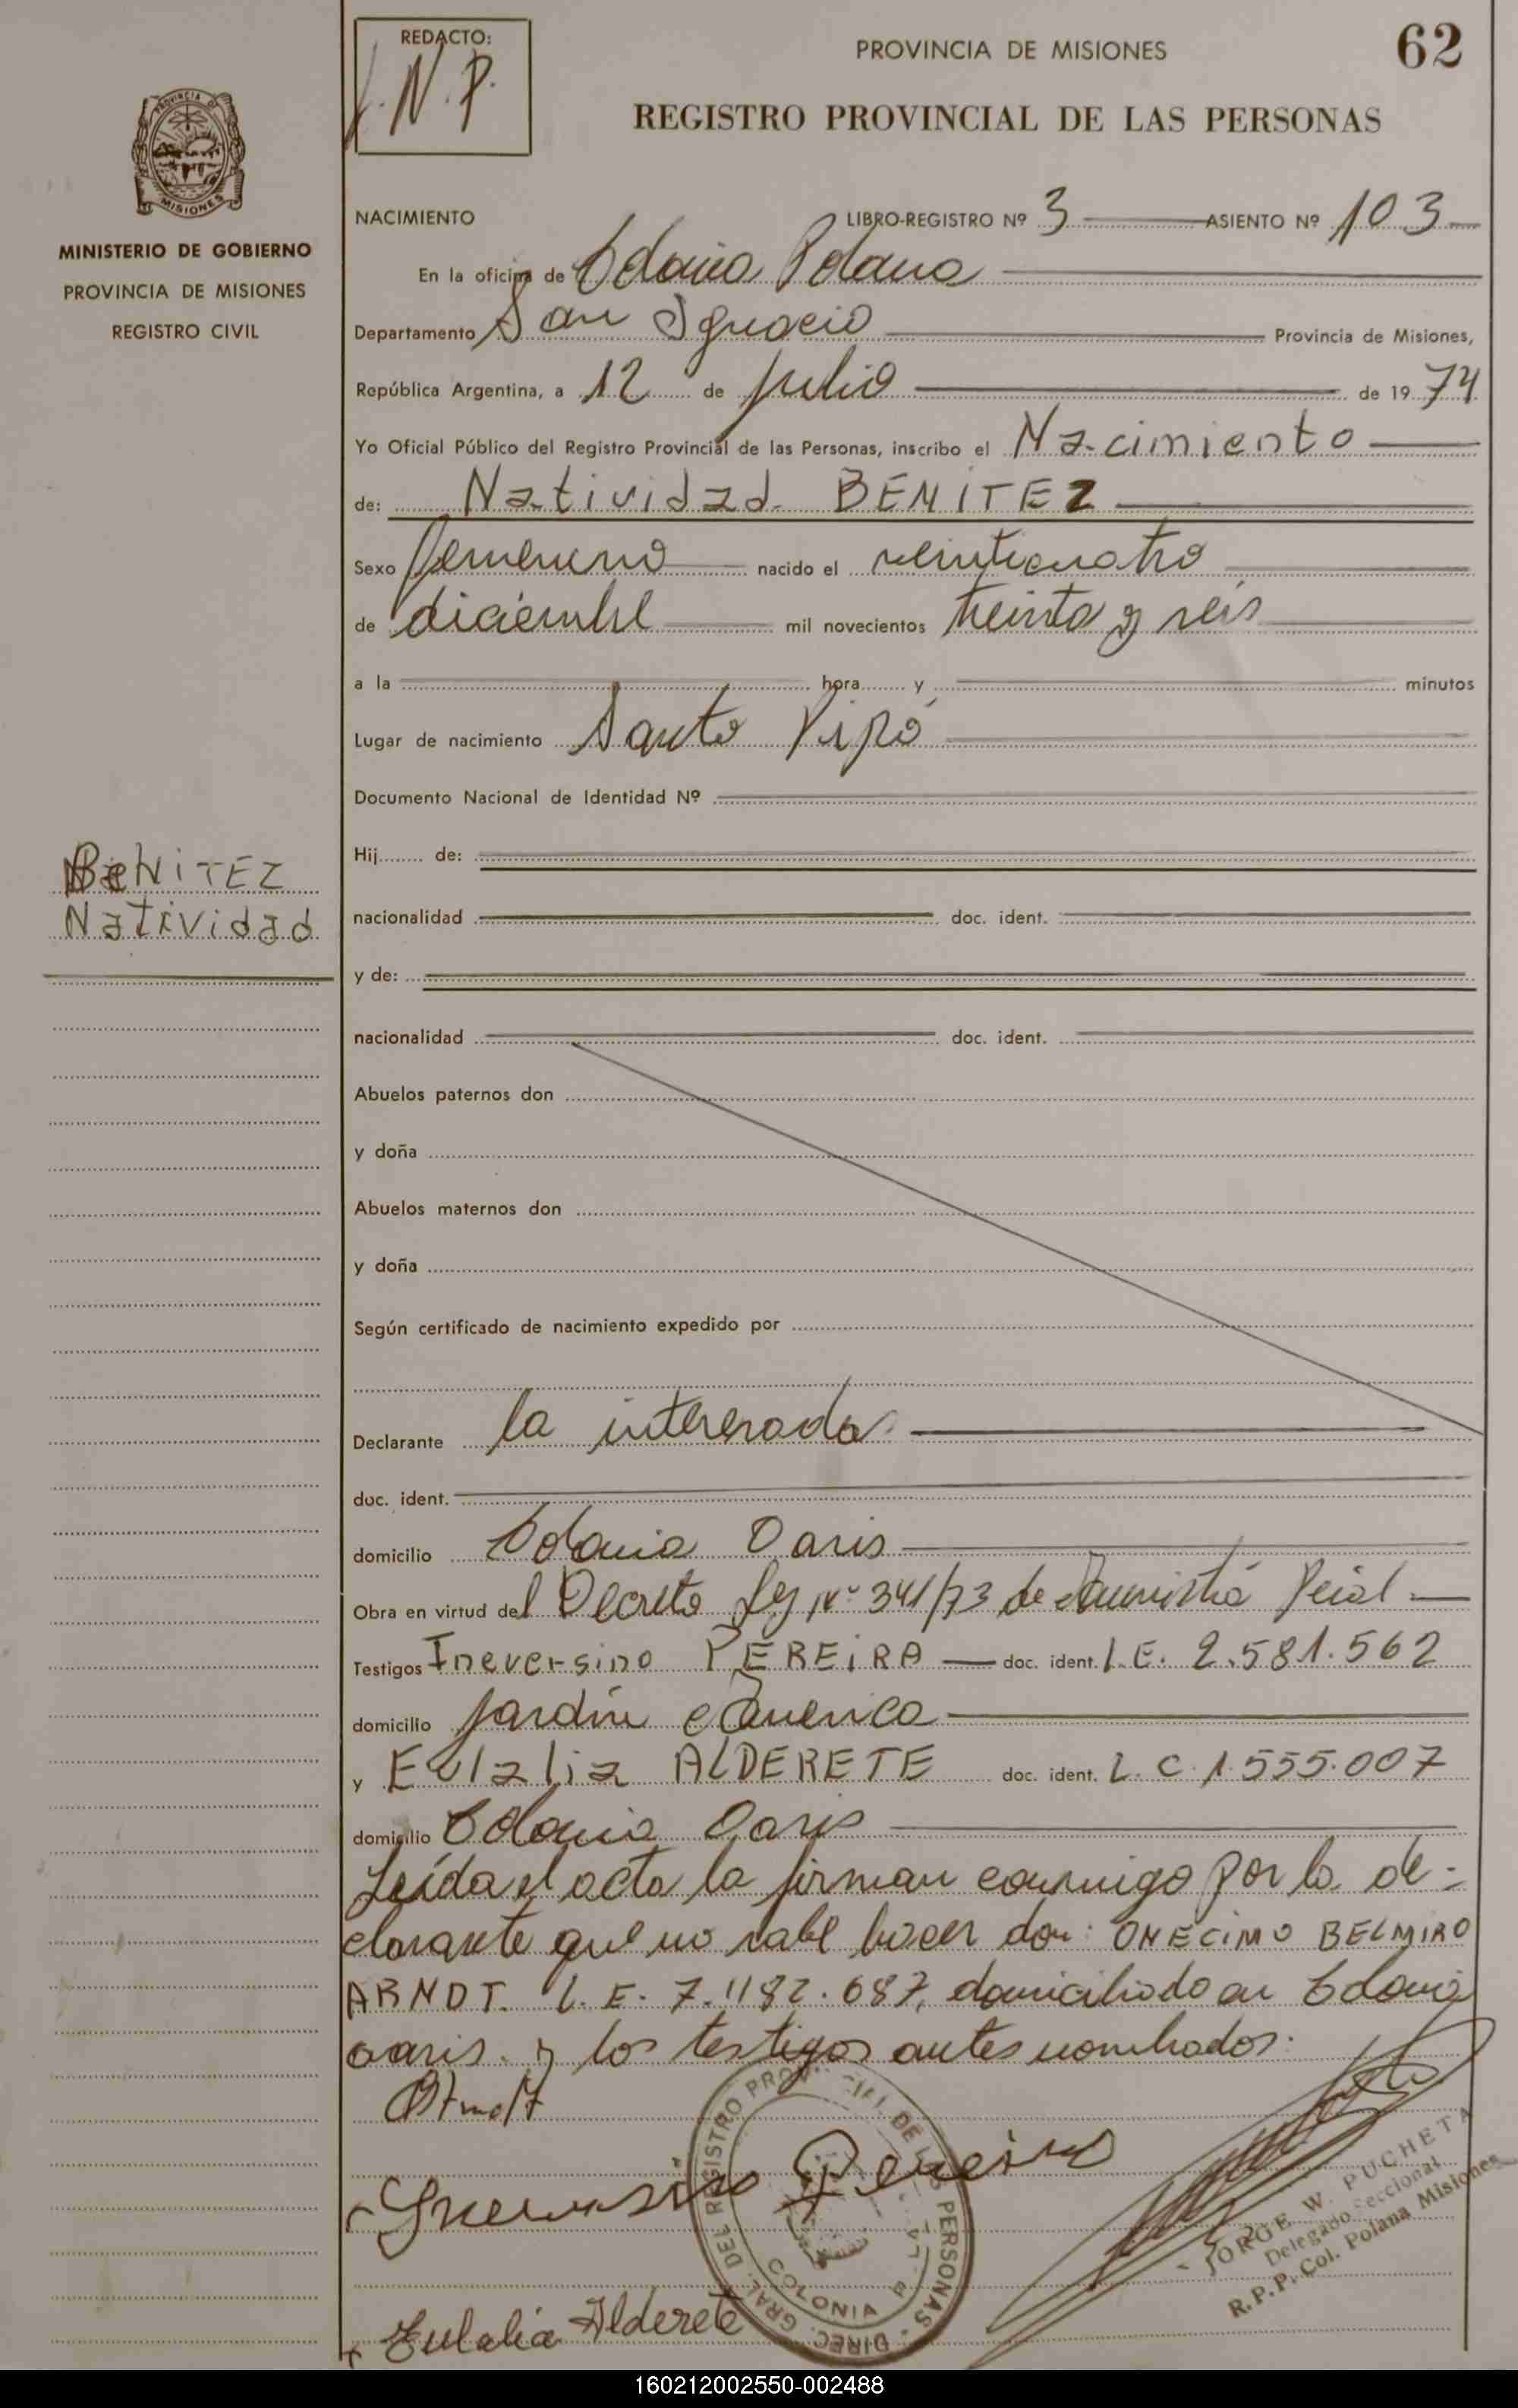 REDACTO:
J.N.P.
PROVINCIA DE MISIONES
62
REGISTRO PROVINCIAL DE LAS PERSONAS
PROVINCIA DE
MISIONES
MINISTERIO DE GOBIERNO
PROVINCIA DE MISIONES
REGISTRO CIVIL
NACIMIENTO LIBRO-REGISTRO Nº 3 ASIENTO Nº 103
En la oficina de Colonia Polana
Departamento San Ignacio Provincia de Misiones,
República Argentina, a 12 de julio de 1974
Yo Oficial Público del Registro Provincial de las Personas, inscribo el Nacimiento
de: Natividad BENITEZ
Sexo femenino nacido el veinticuatro
de diciembre mil novecientos treinta y seis
a la hora y minutos
Lugar de nacimiento Santo Pipó
Documento Nacional de Identidad Nº
Hij de:
BENITEZ
Natividad
nacionalidad doc. ident.
y de:
nacionalidad doc. ident.
Abuelos paternos don
y doña
Abuelos maternos don
y doña
Según certificado de nacimiento expedido por
Declarante la interesada
doc. ident.
domicilio Colonia Oasis
Obra en virtud del Decreto Ley Nº 341/73 de Amnistía
Testigos Ineversino PEREIRA doc. ident. L.E. 2.581.562
domicilio Jardín América
y Eulalia ALDERETE doc. ident. L.C. 1.555.007
domicilio Colonia Oasis
Leída el acta la firman conmigo por la de-
clarante que no sabe hacer don: ONECIMO BELMIRO
ARNDT. L.E. 7.482.687, domiciliado en Colonia
oasis. y los testigos antes nombrados.
Ineversino Pereira
Eulalia Alderete
DIREC. GRAL. DEL REGISTRO PROVINCIAL DE LAS PERSONAS
COLONIA
JORGE W. PUCHETA
Delegado Seccional
R.P.P. Col. Polana Misiones
160212002550-002488